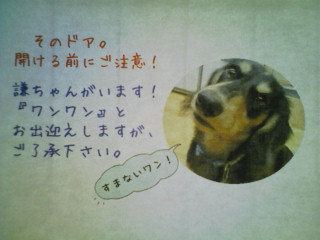 そのドア。
開ける前にご注意!
謙ちゃんがいます!
『ワンワン』と
お出迎えしますが、
ご了承下さい。
すまないワン!